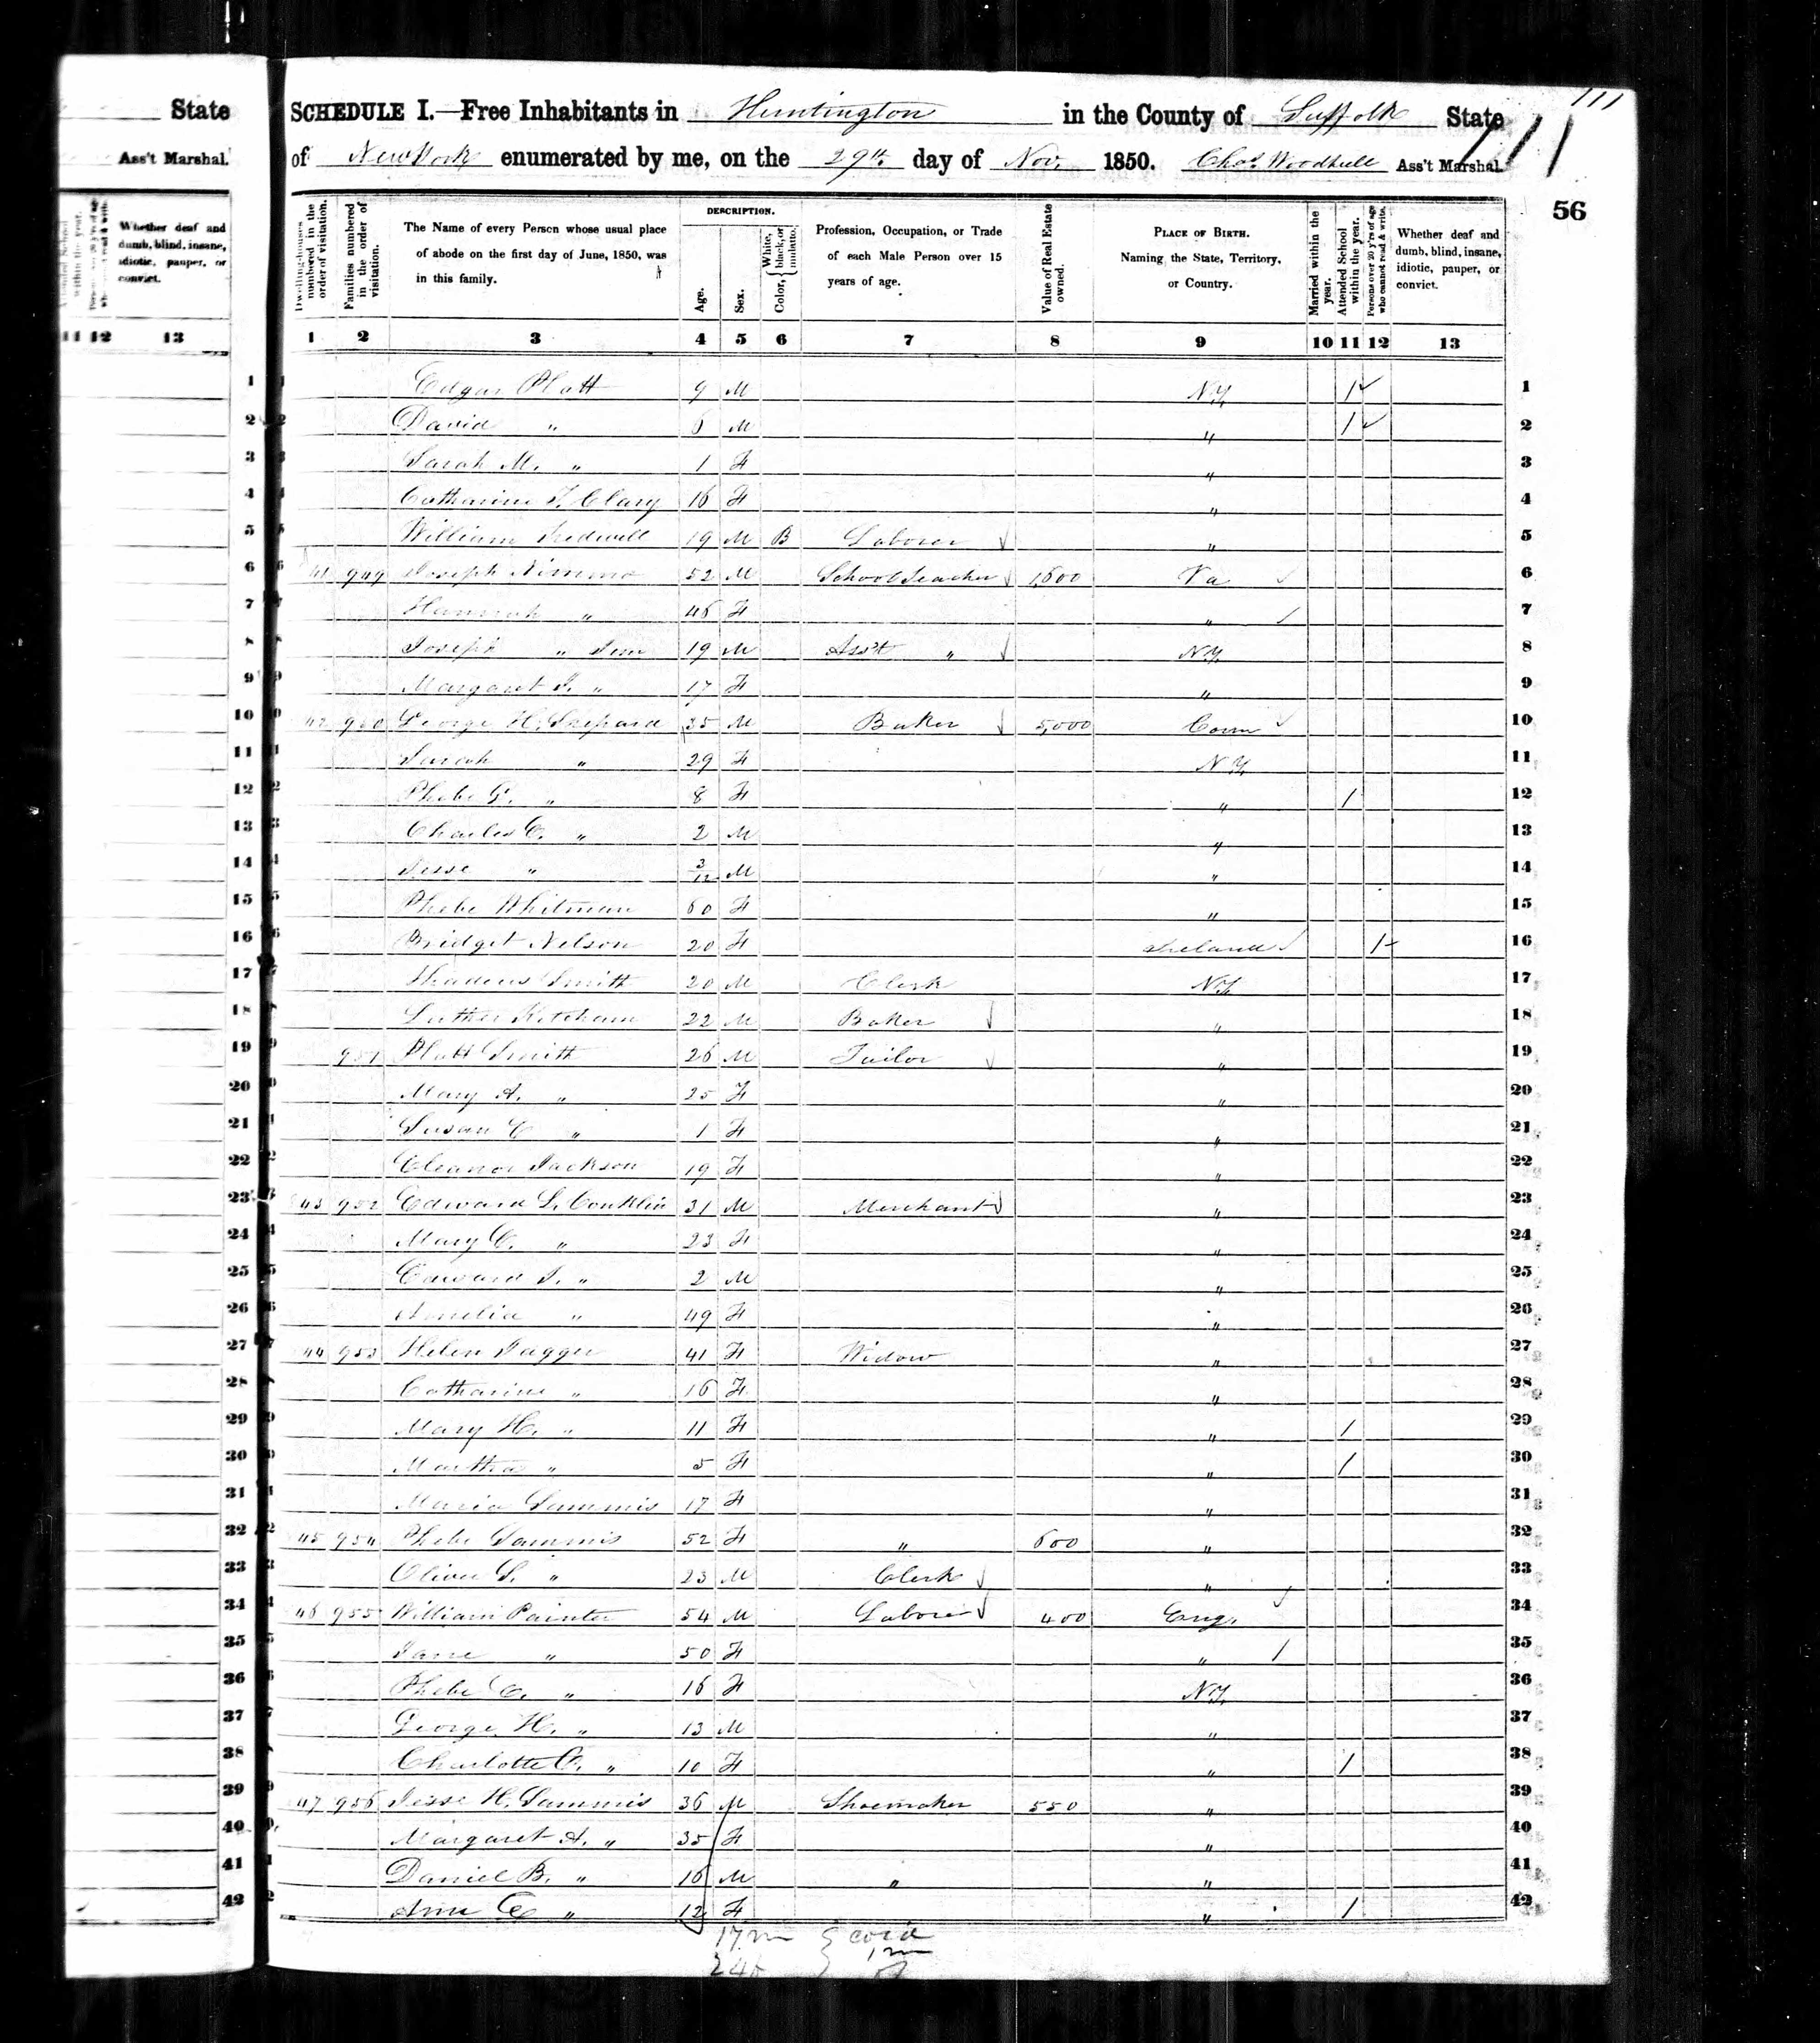 State
Ass't Marshal.
Whether deaf and
dumb, blind, insane,
idiotic, pauper, or
convict.
11 12 13
111
SCHEDULE I.—Free Inhabitants in Huntington in the County of Suffolk State
of New York enumerated by me, on the 29th day of Nov. 1850. Chas. Woodhull Ass't Marshal.
111
56
Dwelling-houses numbered in the order of visitation.
Families numbered in the order of visitation.
The Name of every Person whose usual place
of abode on the first day of June, 1850, was
in this family.
DESCRIPTION.
Age.
Sex.
Color, { White, black, or mulatto.
Profession, Occupation, or Trade
of each Male Person over 15
years of age.
Value of Real Estate owned.
PLACE OF BIRTH.
Naming the State, Territory,
or Country.
Married within the year.
Attended School within the year.
Persons over 20 y'rs of age who cannot read & write.
Whether deaf and
dumb, blind, insane,
idiotic, pauper, or
convict.
1 2 3 4 5 6 7 8 9 10 11 12 13
1 Edgar Platt 9 M N.Y. 1 1
2 David " 6 M " 1 2
3 Sarah M. " 1 F " 3
4 Catharine T. Clary 16 F " 4
5 William Tredwell 19 M B Laborer " 5
6 41 949 Joseph Nimmo 52 M School Teacher 1,600 Va 6
7 Hannah " 46 F " 7
8 Joseph " Jun 19 M Ass't " N.Y. 8
9 Margaret J. " 17 F " 9
10 42 950 George H. Shepard 35 M Baker 5,000 Conn 10
11 Sarah " 29 F N.Y. 11
12 Phebe G. " 8 F " 1 12
13 Charles C. " 2 M " 13
14 Jesse " 3/12 M " 14
15 Phebe Whitman 60 F " 15
16 Bridget Nelson 20 F Ireland 1 16
17 Thadeus Smith 20 M Clerk N.Y. 17
18 Luther Ketcham 22 M Baker " 18
19 951 Platt Smith 26 M Tailor " 19
20 Mary A. " 25 F " 20
21 Susan C " 1 F " 21
22 Eleanor Jackson 19 F " 22
23 43 952 Edward L. Conklin 31 M Merchant " 23
24 Mary C. " 23 F " 24
25 Edward J. " 2 M " 25
26 Amelia " 49 F " 26
27 44 953 Helen Jagger 41 F Widow " 27
28 Catharine " 16 F " 28
29 Mary H. " 11 F " 1 29
30 Martha " 5 F " 1 30
31 Maria Sammis 17 F " 31
32 45 954 Phebe Sammis 52 F " 600 " 32
33 Oliver S. " 23 M Clerk " 33
34 46 955 William Painter 54 M Laborer 400 Eng. 34
35 Jane " 50 F " 35
36 Phebe C. " 16 F N.Y. 36
37 George H. " 13 M " 37
38 Charlotte C. " 10 F " 1 38
39 47 956 Jesse H. Sammis 36 M Shoemaker 550 " 39
40 Margaret A. " 35 F " 40
41 Daniel B. " 16 M " " 41
42 Ann E " 12 F " 1 42
17 m